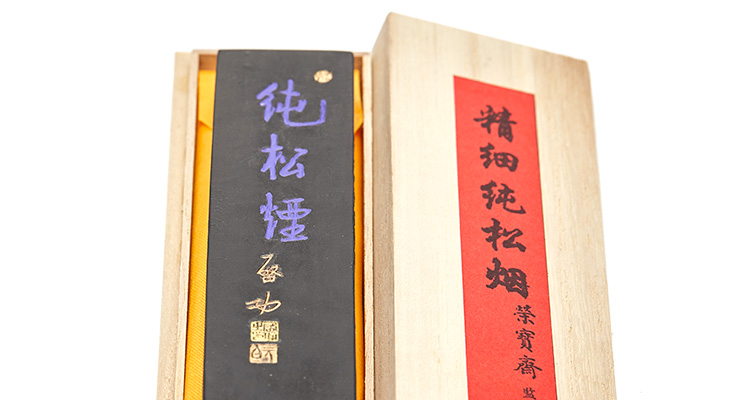 精细纯松烟
荣寶齋
纯松煙
啟功